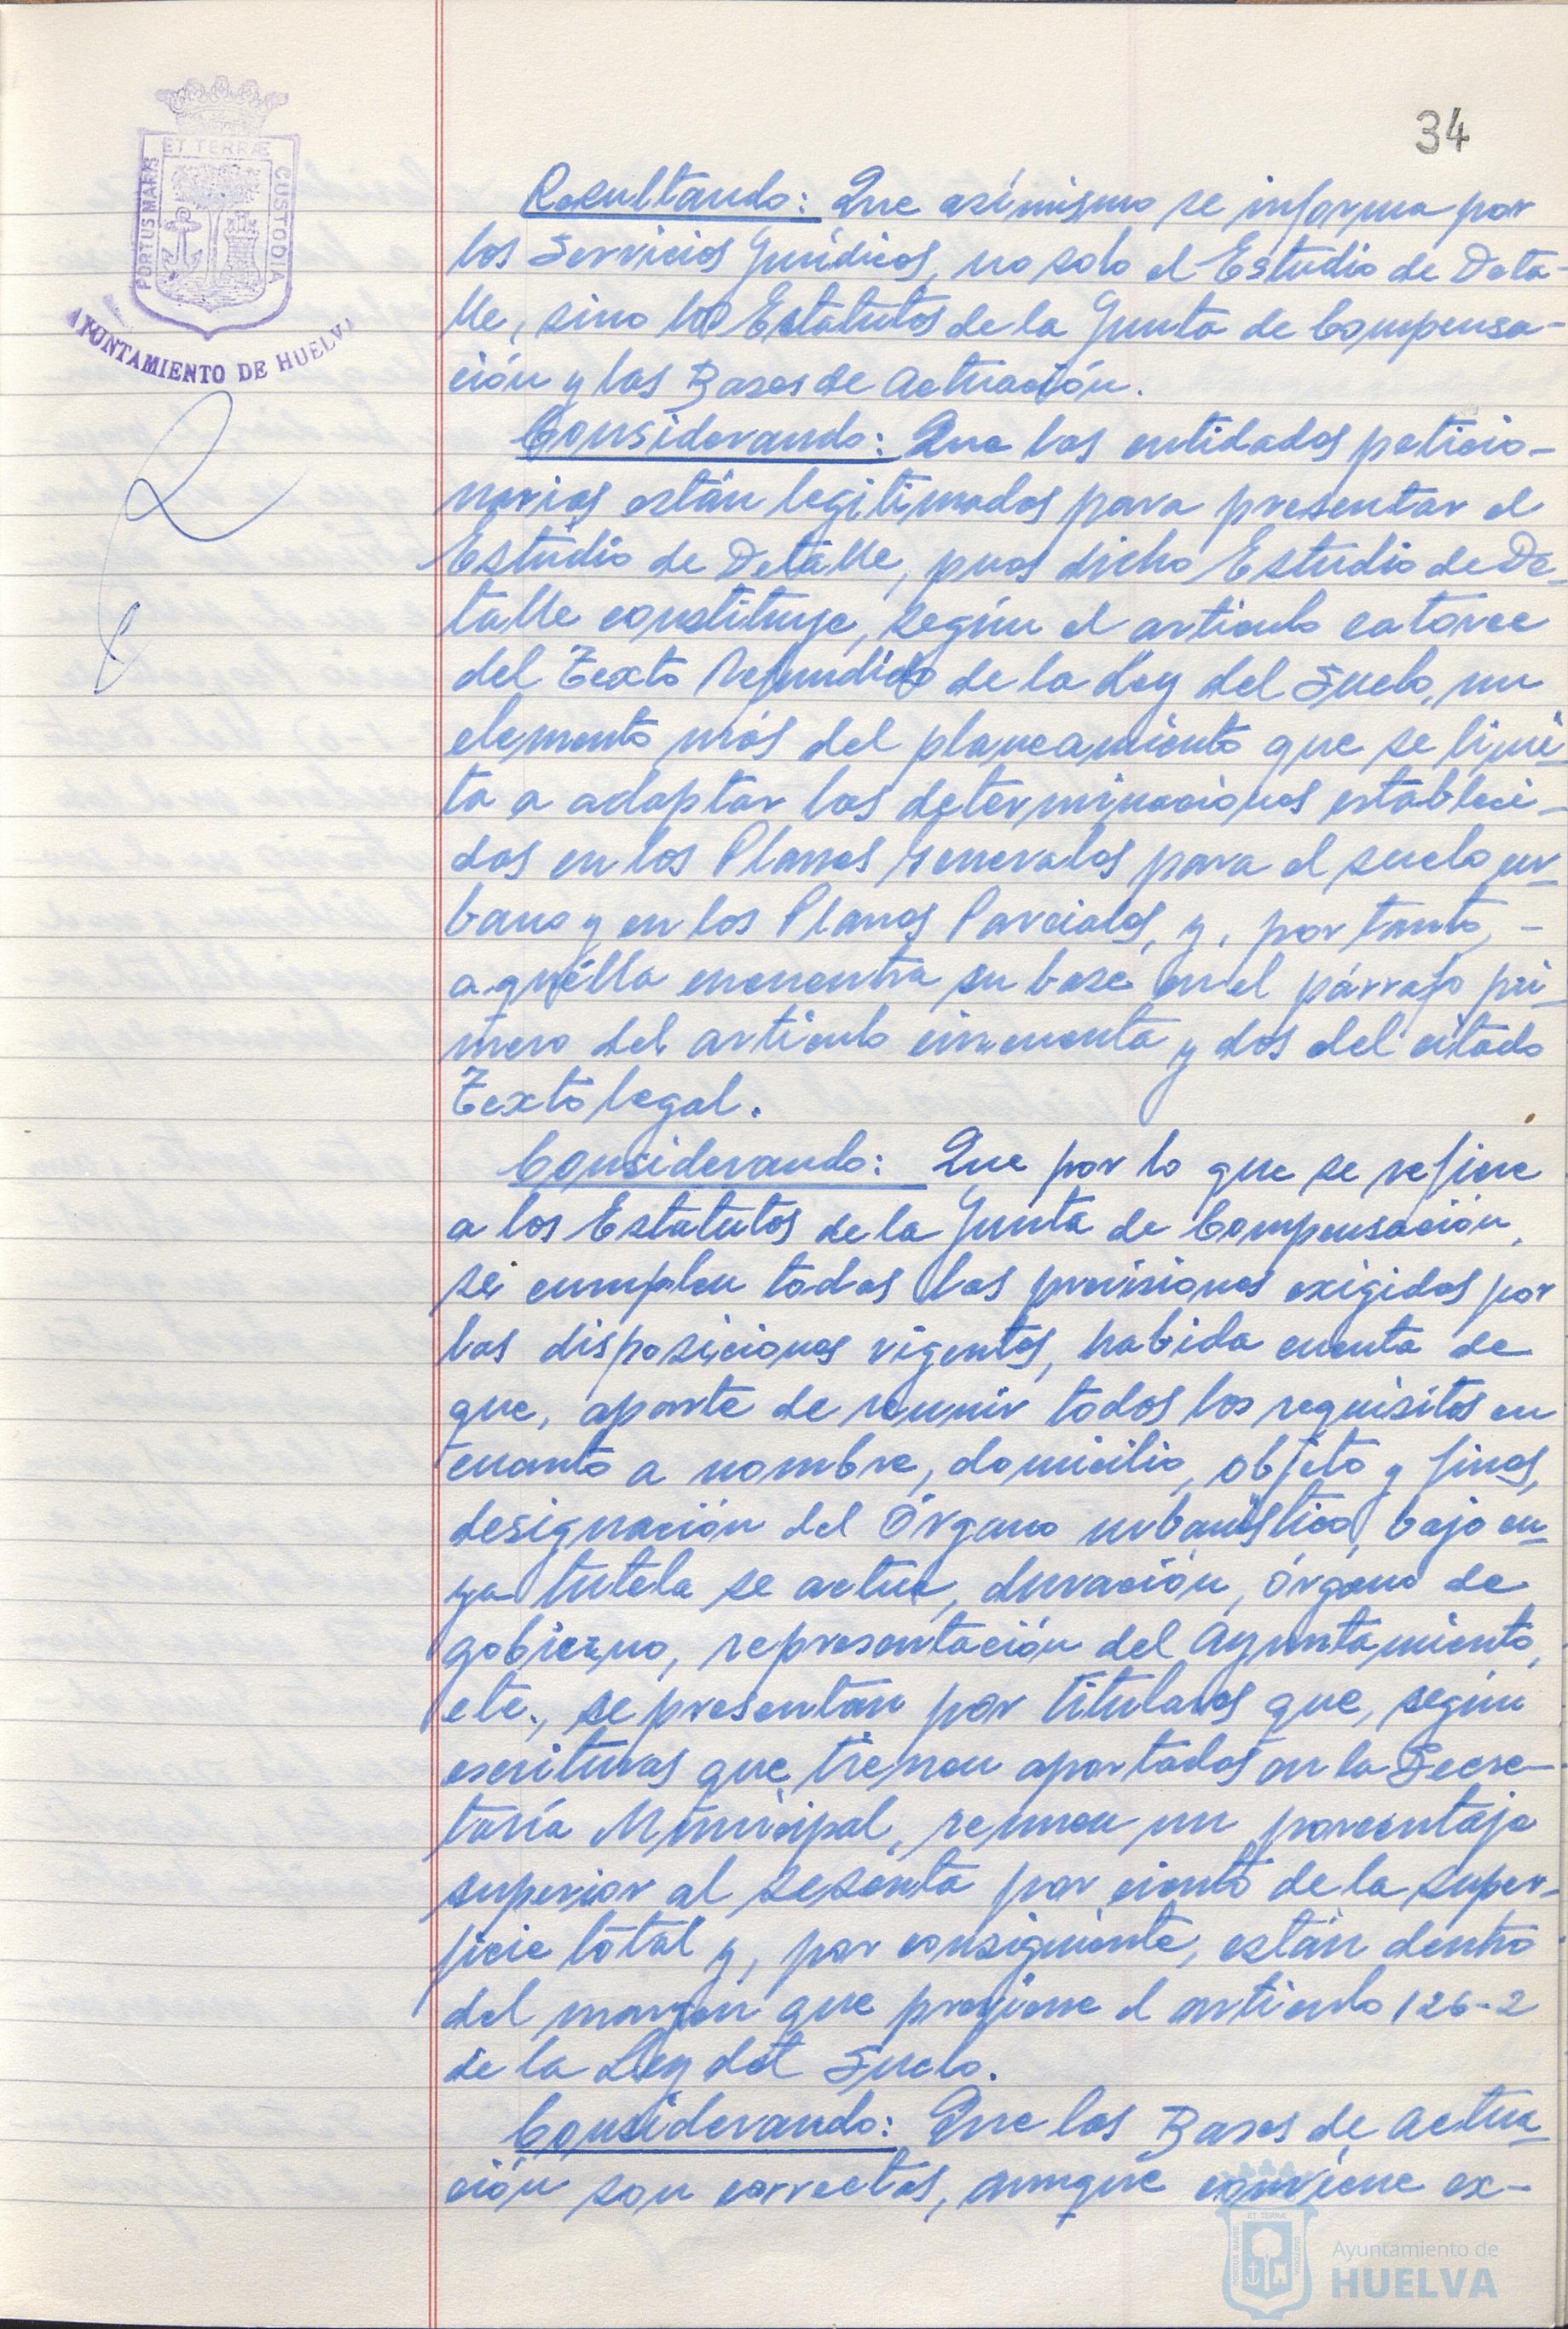 34
PORTUS MARIS
ET TERRÆ
CUSTODIA
AYUNTAMIENTO DE HUELVA
Resultando: Que asímismo se informa por
los Servicios Jurídicos, no solo el Estudio de Deta-
lle, sino los Estatutos de la Junta de Compensa-
ción y las Bases de Actuación.
Considerando: Que las entidades peticio-
narias están legitimadas para presentar el
Estudio de Detalle, pues dicho Estudio de De-
talle constituye, según el artículo catorce
del Texto Refundido de la Ley del Suelo, un
elemento más del planeamiento que se limi-
ta a adaptar las determinaciones estableci-
das en los Planes generales para el suelo ur-
bano y en los Planes Parciales, y, por tanto, -
aquélla encuentra su base en el párrafo pri-
mero del artículo cincuenta y dos del citado
Texto legal.
Considerando: Que por lo que se refiere
a los Estatutos de la Junta de Compensación,
se cumplen todas las previsiones exigidas por
las disposiciones vigentes, habida cuenta de
que, aparte de reunir todos los requisitos en
cuanto a nombre, domicilio, objeto y fines,
designación del Órgano urbanístico, bajo cu-
ya tutela se actue, duración, órgano de
gobierno, representación del Ayuntamiento,
etc., se presentan por titulares que, según
escrituras que tienen aportadas en la Secre-
taría Municipal, reunen un porcentaje
superior al sesenta por ciento de la super-
ficie total y, por consiguiente, están dentro
del margen que previene el artículo 126-2
de la Ley del Suelo.
Considerando: Que las Bases de Actua-
ción son correctas, aunque conviene ex-
Ayuntamiento de
HUELVA